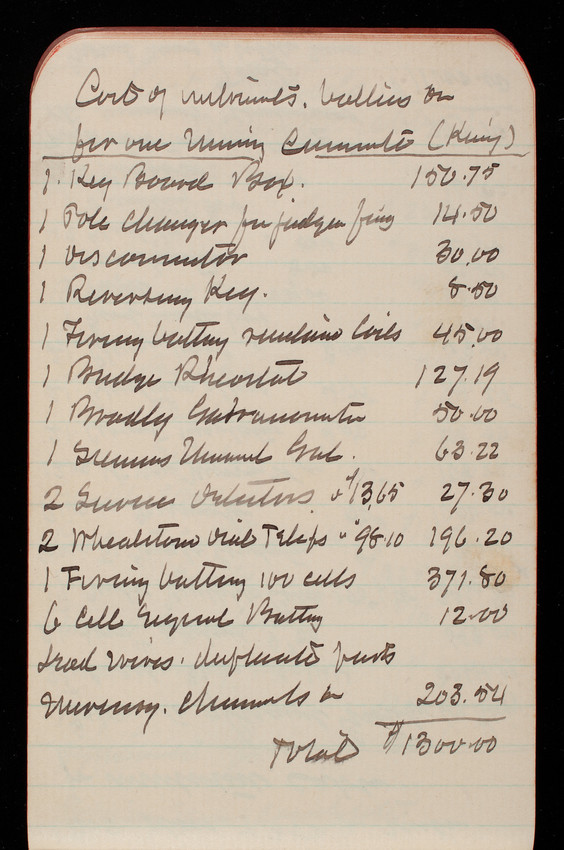 Cost of instruments, batteries &c
for one Mining Casemate (King)
1. Key Board Box. 150.75
1 Pole changer for judgm firing 14.50
1 Disconnector 30.00
1 Reversing Key. 8.50
1 Firing battery resistance Coils 45.00
1 Bridge Rheostat 127.19
1 Bradley Galvanometer 50.00
1 Siemens Universal Gal. 63.22
2 Service Detectors. @ $13.65 27.30
2 Wheatstone Dial Telegs " " 98.10 196.20
1 Firing battery 100 cells 371.80
6 Cell Signal Battery 12.00
Lead wires. duplicate parts
Mercury. Chemicals &c 203.54
Total $1300.00